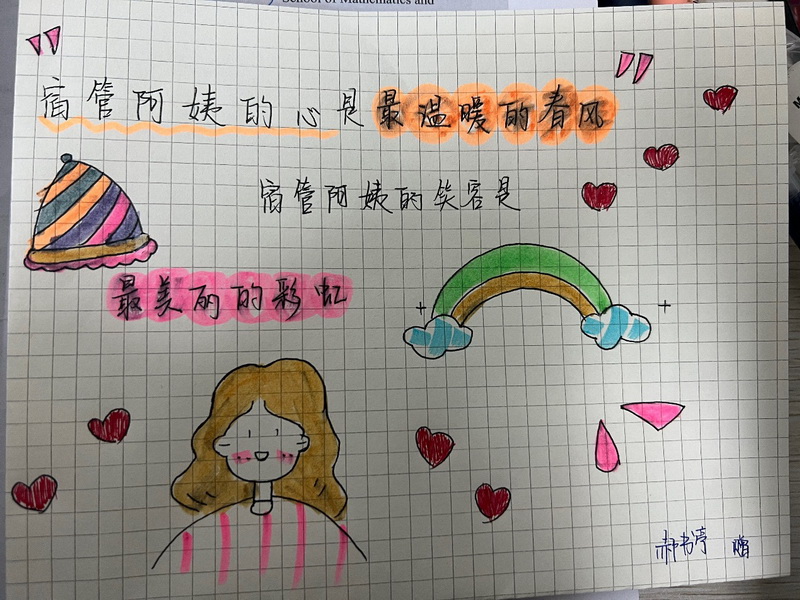 School of Mathematics and
宿管阿姨的心是最温暖的春风
宿管阿姨的笑容是
最美丽的彩虹
郝书婷 赠